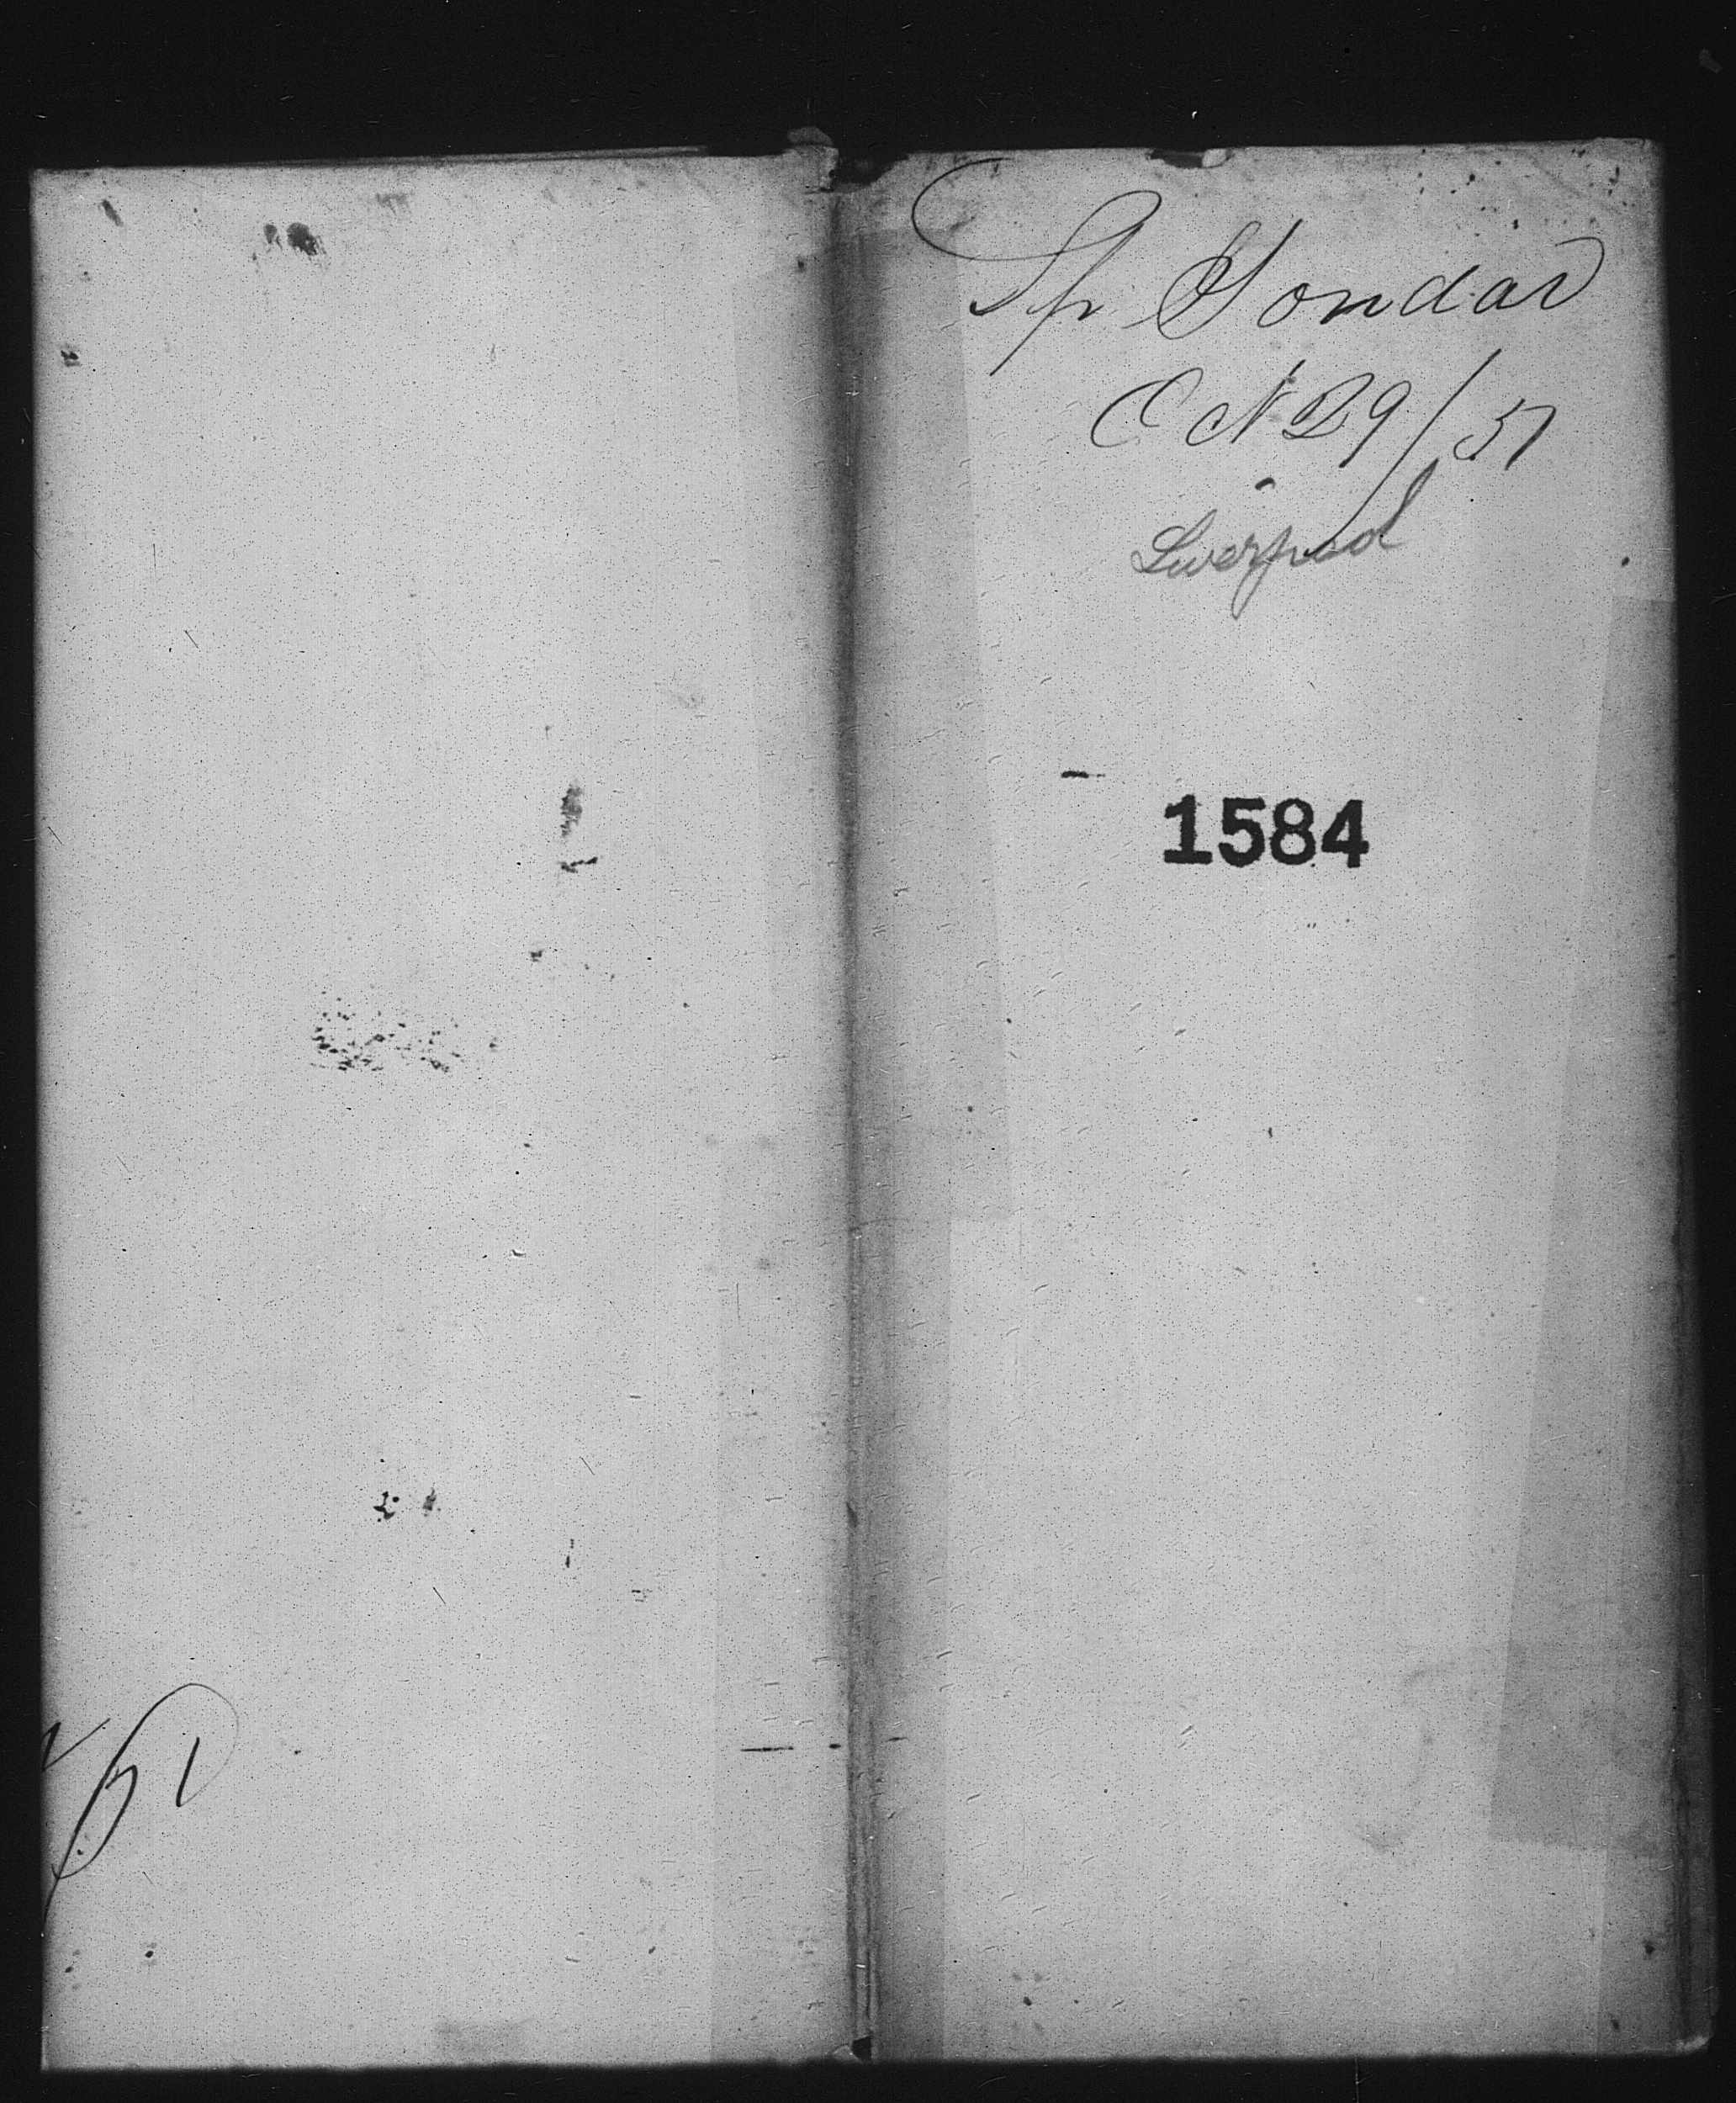 Sh Gondar
Oct 29/51
Liverpool
1584
51